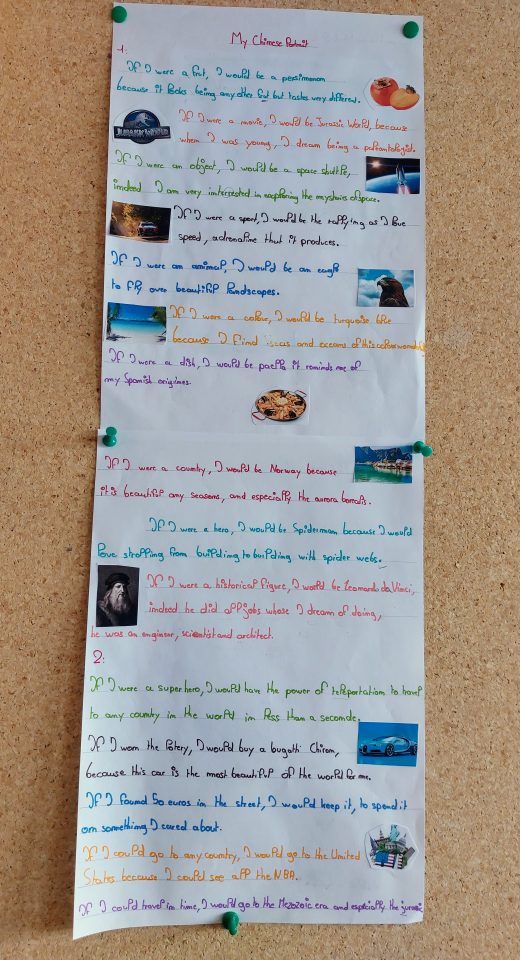 My Chinese Portrait
1:
If I were a fruit, I would be a persimmon
because it looks being any other but tastes very different.
If I were a movie, I would be Jurassic World, because
JURASSIC WORLD
when I was young, I dream being a paleontologist.
If I were an object, I would be a space shuttle,
indeed I am very interested in exploring the mysteries of space.
If I were a sport, I would be the rallying as I love
speed, adrenaline that it produces.
If I were an animal, I would be an eagle
to fly over beautiful landscapes.
If I were a colour, I would be turquoise blue
because I find and oceans of this colour wonderful
If I were a dish, I would be paella it reminds me of
my Spanish origines.
If I were a country, I would be Norway because
it is beautiful any seasons, and especially the aurora borealis.
If I were a hero, I would be Spiderman because I would
love strolling from building to building with spider webs.
If I were a historical figure, I would be Leonardo da Vinci,
indeed he did all jobs whose I dream of doing,
he was an engineer, scientist and architect.
2:
If I were a superhero, I would have the power of teleportation to travel
to any country in the world in less than a seconde.
If I won the lotery, I would buy a bugatti Chiron,
because this car is the most beautiful of the world for me.
If I found 50 euros in the street, I would keep it, to spend it
on something I cared about.
If I could go to any country, I would go to the United
States because I could see all the NBA.
If I could travel in time, I would go to the Mezozoic era and especially the jurassic